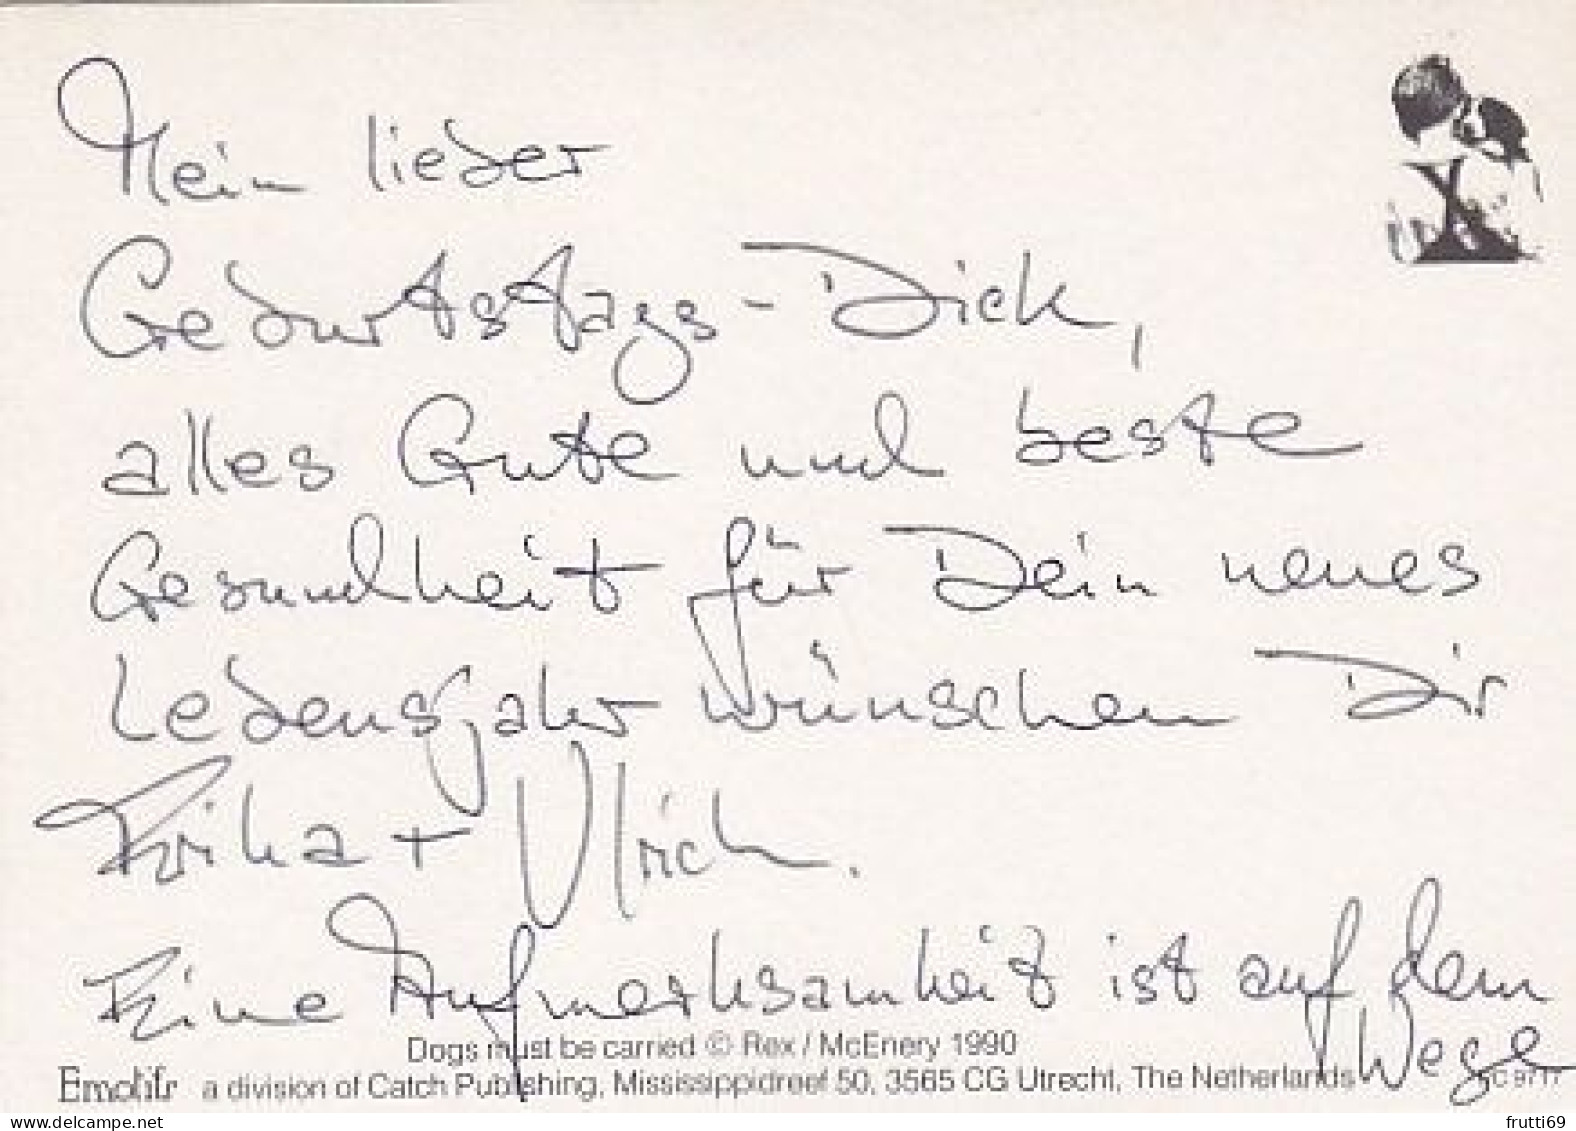 Mein lieber
Geburtstags-Dick,
alles Gute und beste
Gesundheit für Dein neues
Lebensjahr wünschen Dir
Erika + Ulrich.
Eine Aufmerksamkeit ist auf dem
Wege
Dogs must be carried © Rex / McEnery 1990
Emotifs a division of Catch Publishing, Mississippidreef 50, 3565 CG Utrecht, The Netherlands
www.delcampe.net
frutti69